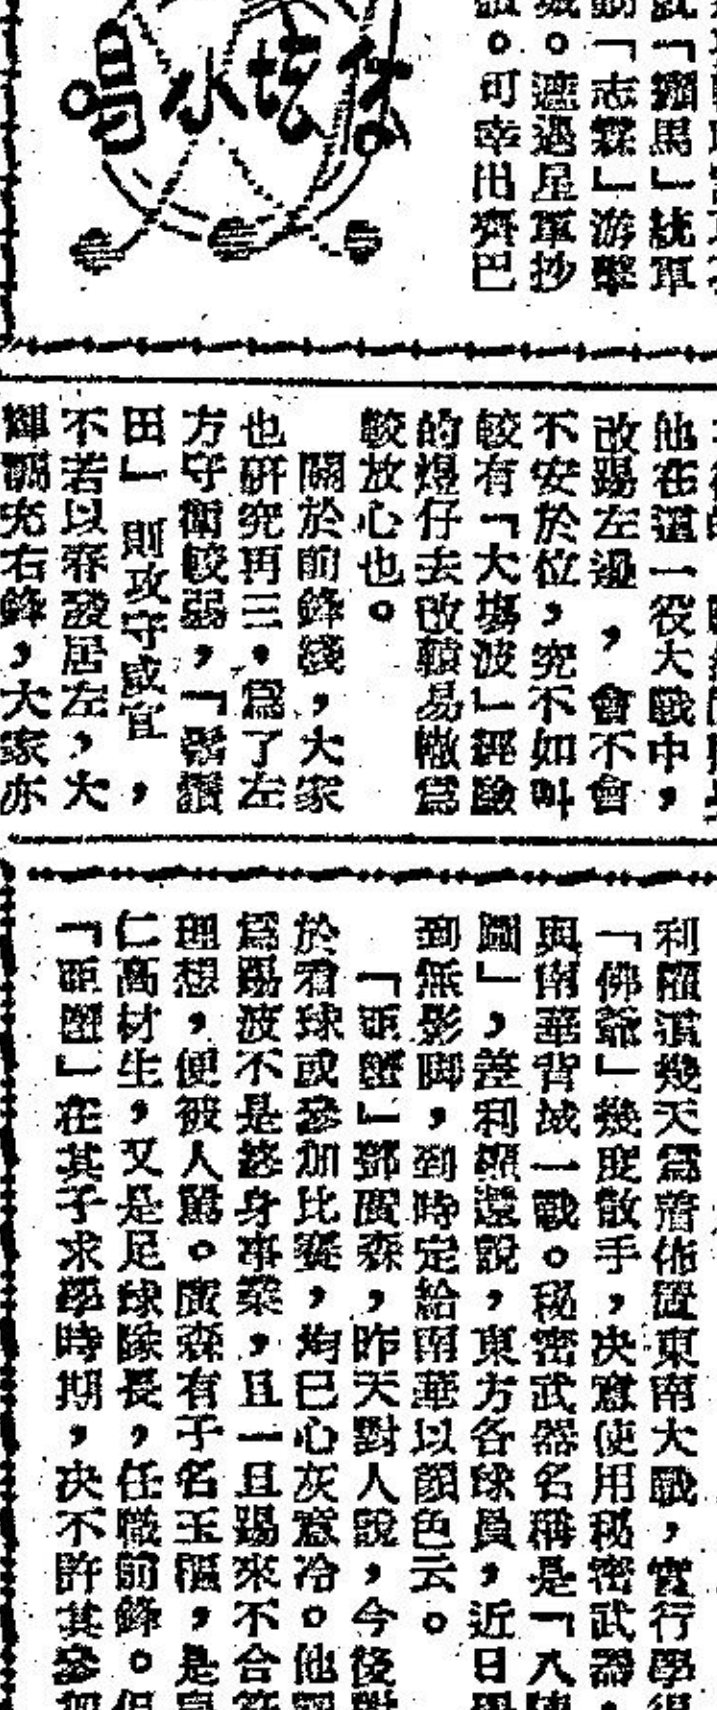 就「獺馬」統軍
「志霖」游擊
。遮遇星軍抄
。可幸出齊巴
休坑水喝
他在這一役大戰中，
改踢左邊，會不會
不安於位，究不如叫
較有「大塲波」經驗
的煜仔去改轅易轍爲
較放心也。
關於前鋒綫，大家
也研究再三，爲了左
方守衛較弱，「
田」則攻守咸宜，
不若以春發居左，大
輝調充右鋒，大家亦
利羅這幾天爲着佈置東南大戰，實行學
「佛爺」幾度散手，决意使用秘密武器，
與南華背城一戰。秘密武器名稱是「八陣
圖」，差利羅還說，東方各球員，近日
到無影脚，到時定給南華以顏色云。
「亞蟹」鄧廣森，昨天對人說，今後對
於看球或參加比賽，均已心灰意冷。他
爲踢波不是終身事業，且一旦踢來不合符
理想，便被人罵。廣森有子名玉樞，是
仁高材生，又是足球隊長，任職前鋒。但
「亞蟹」在其子求學時期，决不許其參加